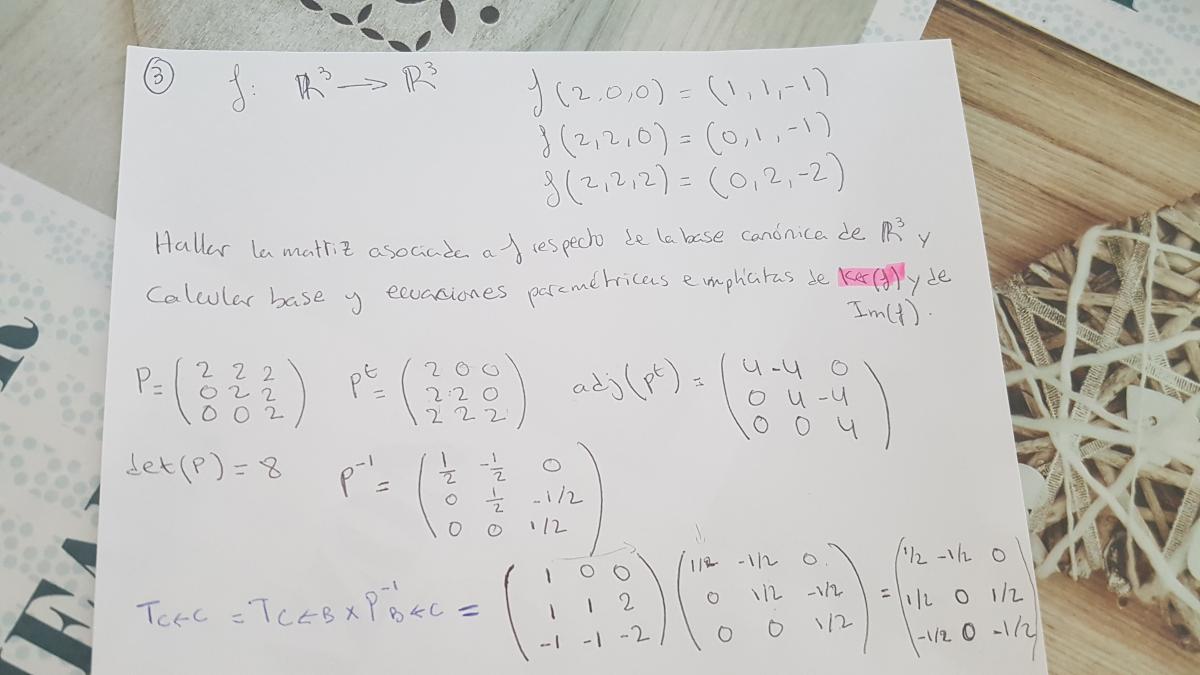 ③ f: ℝ³ → ℝ³ f(2,0,0) = (1,1,-1)
f(2,2,0) = (0,1,-1)
f(2,2,2) = (0,2,-2)
Hallar la matriz asociada a f respecto de la base canónica de ℝ³ y
Calcular base y ecuaciones paramétricas e implícitas de Ker(f) y de
Im(f).
P = (2 2 2 / 0 2 2 / 0 0 2) Pᵗ = (2 0 0 / 2 2 0 / 2 2 2) adj(Pᵗ) = (4 -4 0 / 0 4 -4 / 0 0 4)
det(P) = 8 P⁻¹ = (1/2 -1/2 0 / 0 1/2 -1/2 / 0 0 1/2)
T C←C = T C←B × P⁻¹ B←C = (1 0 0 / 1 1 2 / -1 -1 -2) (1/2 -1/2 0 / 0 1/2 -1/2 / 0 0 1/2) = (1/2 -1/2 0 / 1/2 0 1/2 / -1/2 0 -1/2)